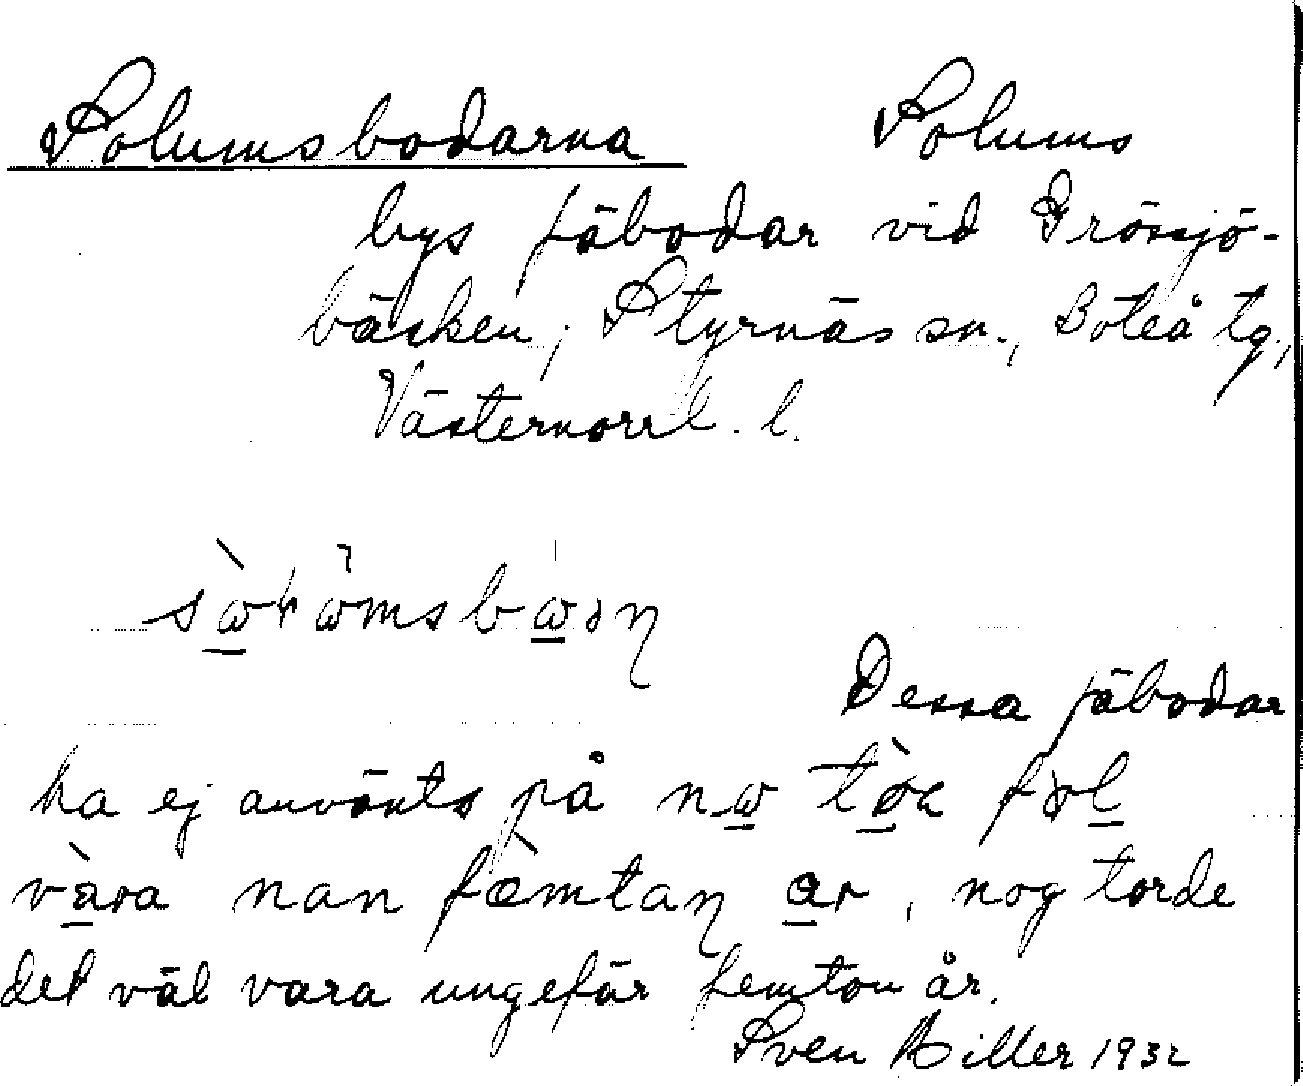 Solumsbodarna Solums
bys fäbodar vid Grössjö-
bäcken, Styrnäs sn., Boteå tg.,
Västernorrl. l.
Dessa fäbodar
ha ej använts på
nan ar, nog torde
det väl vara ungefär femton år.
Sven Hiller 1932